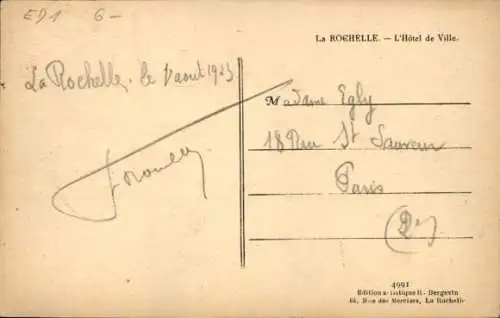 ED1 6-
La ROCHELLE. — L'Hôtel de Ville.
La Rochelle. le 1 aout 1923
Madame Egly
18 Rue St Sauveur
Paris
(2e)
4991
Edition artistique H. Bergevin
64, Rue des Merciers, La Rochelle